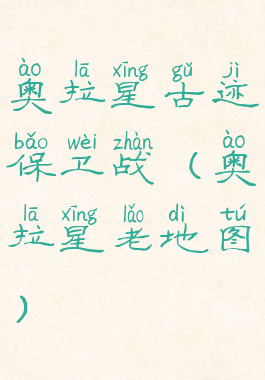 ào lā xīng gǔ jì
奥拉星古迹
bǎo wèi zhàn ào
保卫战（奥
lā xīng lǎo dì tú
拉星老地图
）